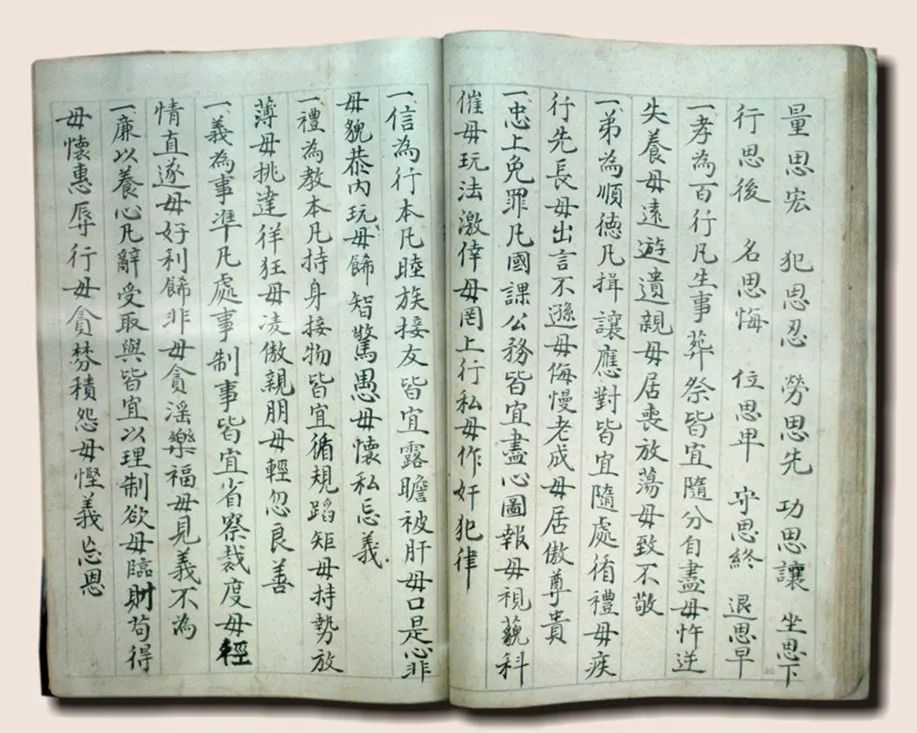 量思宏 犯思忍 勞思先 功思讓 坐思下
行思後 名思悔 位思卑 守思終 退思早
一孝為百行凡生事葬祭皆宜隨分自盡毋忤逆
失養毋遠遊遺親毋居喪放蕩毋致不敬
一弟為順德凡揖讓應對皆宜隨處循禮毋疾
行先長毋出言不遜毋侮慢老成毋居傲尊貴
一忠上免罪凡國課公務皆宜盡心圖報毋視藐科
催毋玩法激倖毋罔上行私毋作奸犯律
一信為行本凡睦族接友皆宜露瞻被肝毋口是心非
毋貌恭內玩毋餙智驚愚毋懷私忘義
一禮為教本凡持身接物皆宜循規蹈矩毋持勢放
薄毋挑達徉狂毋凌傲親朋毋輕忽良善
一義為事準凡處事制事皆宜省察裁度毋輕
情直遂毋好利餙非毋貪滛樂福毋見義不為
一廉以養心凡辭受取與皆宜以理制欲毋臨財茍得
毋懷惠辱行毋貪婪積怨毋慳義忘恩